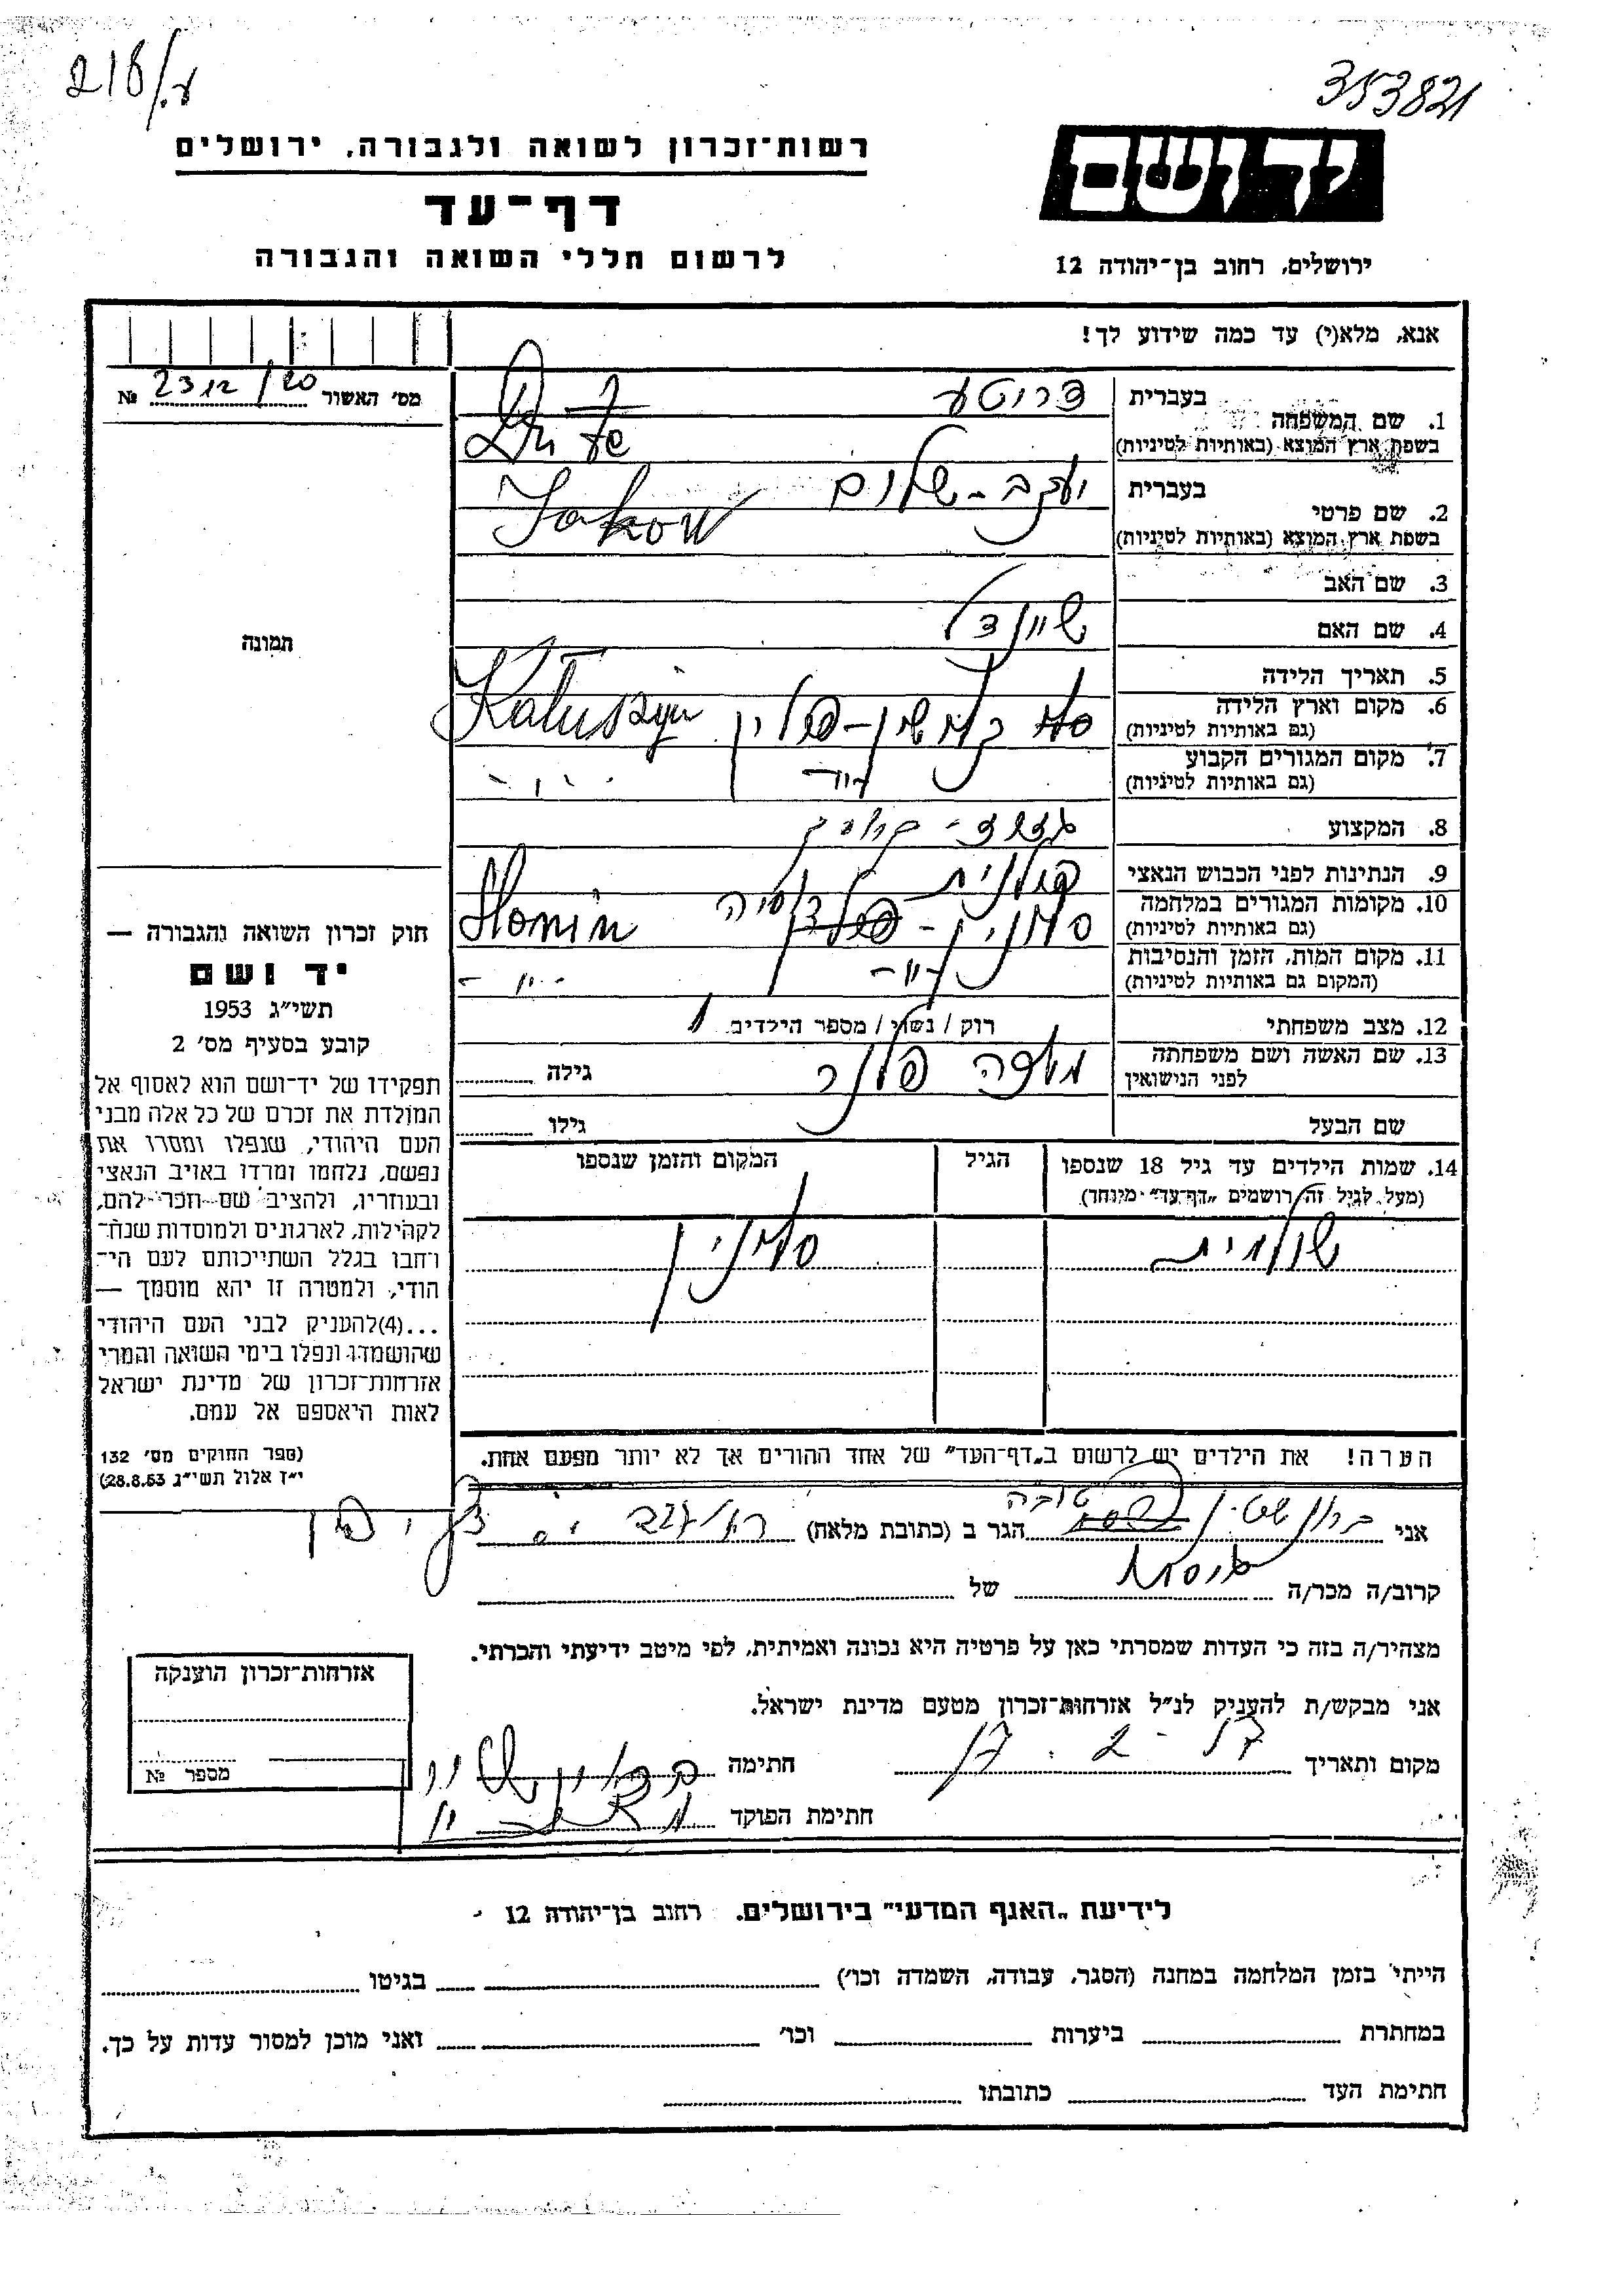 218/ע.
353821
יד ושם
רשות־זכרון לשואה ולגבורה, ירושלים
דף־עד
לרשום חללי השואה והגבורה
ירושלים, רחוב בן־יהודה 12
אנא, מלא(י) עד כמה שידוע לך!
מס׳ האשור 2312/20 №
1. שם המשפחה
בעברית דרוטע
בשפת ארץ המוצא (באותיות לטיניות) Drute
2. שם פרטי
בעברית יעקב־שלום
בשפת ארץ המוצא (באותיות לטיניות) Jakow
3. שם האב
4. שם האם שיינדל
5. תאריך הלידה
6. מקום וארץ הלידה
(גם באותיות לטיניות) קלושין־פולין Kałuszyn
7. מקום המגורים הקבוע
(גם באותיות לטיניות) -״- -״-
8. המקצוע
9. הנתינות לפני הכבוש הנאצי פולנית
10. מקומות המגורים במלחמה
(גם באותיות לטיניות) סלונים - רוסיה Słonim
11. מקום המות, הזמן והנסיבות
(המקום גם באותיות לטיניות) -״- -״-
12. מצב משפחתי רוק / נשוי / מספר הילדים 1
13. שם האשה ושם משפחתה
לפני הנישואין גילה
שם הבעל גילו
14. שמות הילדים עד גיל 18 שנספו
(מעל לגיל זה רושמים „דף־עד״ מיוחד)
הגיל
המקום והזמן שנספו
שולמית
תמונה
חוק זכרון השואה והגבורה —
יד ושם
תשי״ג 1953
קובע בסעיף מס׳ 2
תפקידו של יד־ושם הוא לאסוף אל
המולדת את זכרם של כל אלה מבני
העם היהודי, שנפלו ומסרו את
נפשם, נלחמו ומרדו באויב הנאצי
ובעוזריו, ולהציב שם וזכר להם,
לקהילות, לארגונים ולמוסדות שנח־
רחבו בגלל השתייכותם לעם הי־
הודי, ולמטרה זו יהא מוסמך —
...(4)להעניק לבני העם היהודי
שהושמדו ונפלו בימי השואה והמרי
אזרחות־זכרון של מדינת ישראל
לאות היאספם אל עמם.
(ספר החוקים מס׳ 132
י״ז אלול תשי״ג 28.8.53)
הערה! את הילדים יש לרשום ב„דף־העד״ של אחד ההורים אך לא יותר מפעם אחת.
אני טובה הגר ב (כתובת מלאה)
קרוב/ה מכר/ה גיסת של
מצהיר/ה בזה כי העדות שמסרתי כאן על פרטיה היא נכונה ואמיתית, לפי מיטב ידיעתי והכרתי.
אני מבקש/ת להעניק לנ״ל אזרחות־זכרון מטעם מדינת ישראל.
מקום ותאריך חתימה
חתימת הפוקד
אזרחות־זכרון הוענקה
מספר №
לידיעת „האגף המדעי״ בירושלים. רחוב בן־יהודה 12
הייתי בזמן המלחמה במחנה (הסגר, עבודה, השמדה וכו׳) בגיטו
במחתרת ביערות וכו׳ ואני מוכן למסור עדות על כך.
חתימת העד כתובתו